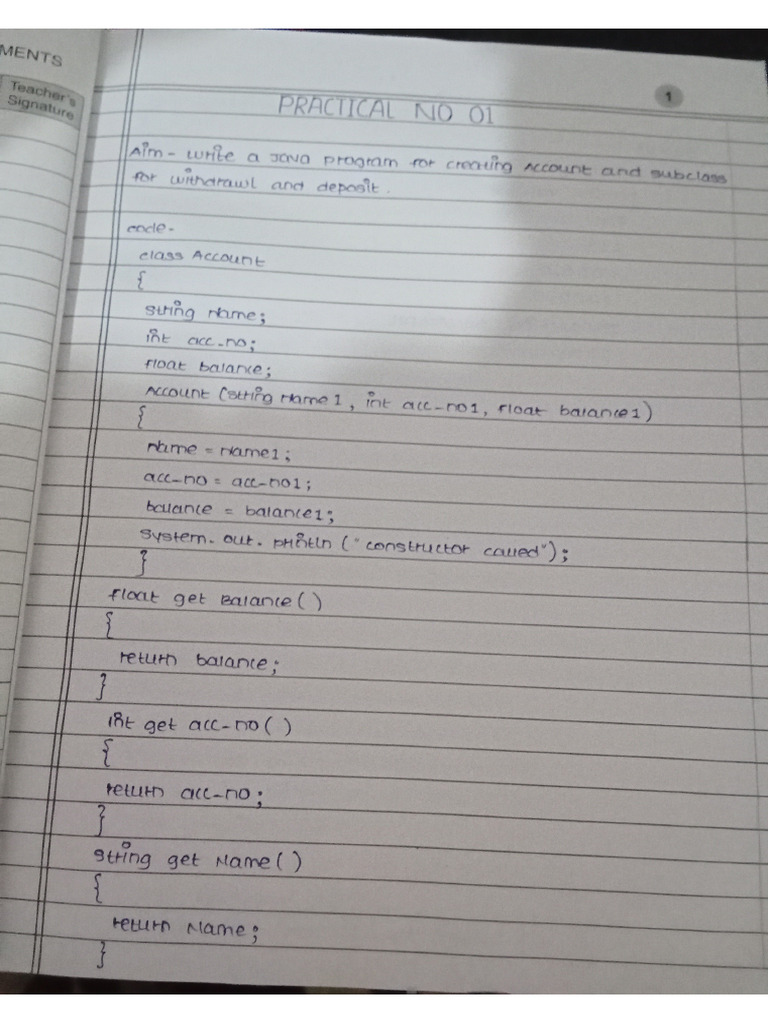 MENTS
Teacher's
Signature
1
PRACTICAL NO 01
Aim - write a Java program for creating Account and subclass
for withdrawl and deposit.
code-
class Account
{
string Name;
int acc-no;
float balance;
Account (string Name1, int acc-no1, float balance1)
{
Name = Name1;
acc-no = acc-no1;
balance = balance1;
system. out. println ("constructor called");
}
float get Balance()
{
return balance;
}
int get acc-no()
{
return acc-no;
}
string get Name()
{
return Name;
}